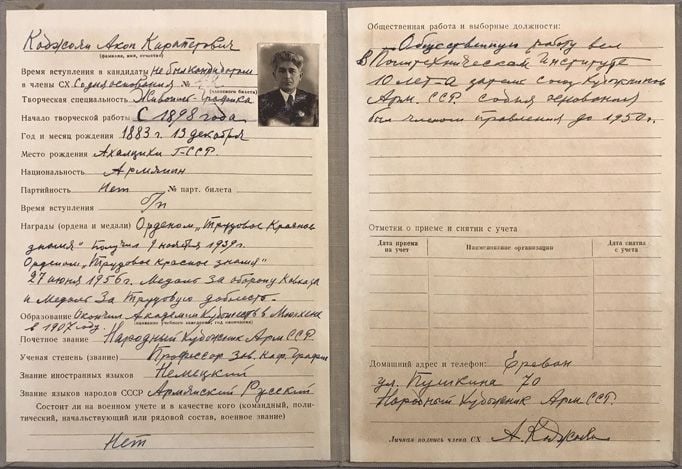 Коджоян Акоп Карапетович
(фамилия, имя, отчество)
Время вступления в кандидаты не был кандидатом
в члены СХ Со дня основания №
(членского билета)
Творческая специальность Живопись-Графика
Начало творческой работы С 1898 года
Год и месяц рождения 1883 г. 13 декабря
Место рождения Ахалцихи Г-ССР.
Национальность Армянин
Партийность Нет № парт. билета
Время вступления Б/п
Награды (ордена и медали) Орденом „Трудовое Красное
знамя" получил 9 ноября 1939 г.
Орденом „Трудовое красное знамя"
27 июня 1956 г. Медаль За оборону Кавказа
и Медаль За Трудовую доблесть.
Образование Окончил Академии Художеств в Мюнхене
(название учебного заведения, год окончания)
в 1907 году.
Почетное звание Народный Художник Арм ССР.
Ученая степень (звание) Профессор Зав. Каф. Графики
Знание иностранных языков Немецкий
Знание языков народов СССР Армянский Русский
Состоит ли на военном учете и в качестве кого (командный, поли-
тический, начальствующий или рядовой состав, военное звание)
Нет
Общественная работа и выборные должности:
Общественную работу вел
в Политехническом Институте
10 лет а Союз Художников
Арм. ССР. Со дня основания
был членом правления до 1950 г.
Отметки о приеме и снятии с учета
Дата приема на учет Наименование организации Дата снятия с учета
Домашний адрес и телефон: Ереван
ул. Пушкина 70
Народный Художник Арм ССР.
Личная подпись члена СХ А. Коджоян